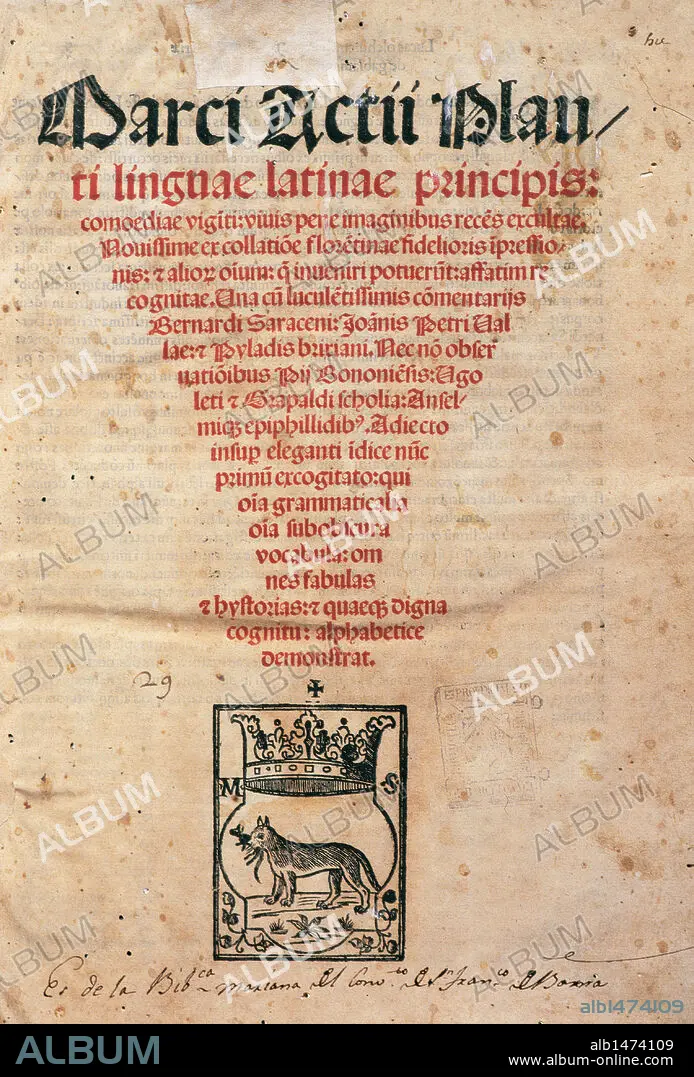 Marci Actii Plau/
ti linguae latinae principis:
comoediae vigīti: viuis pene imaginibus recēs excultae.
Nouissime ex collatiōe florētinae fidelioris īpressio
nis: ⁊ alioꝝ oīum: q̄ inueniri potuerūt: affatim re
cognitae. Una cū luculētissimis cōmentarijs
Bernardi Saraceni: Joānis Petri Val
lae: ⁊ Pyladis brixiani. Nec nō obser
uatiōibus Pij Bononiēsis: Ugo
leti ⁊ Grapaldi scholia: Ansel/
miqꝫ epiphillidibꝰ. Adiecto
insuꝑ eleganti īdice nūc
primū excogitato: qui
oīa grammaticalia
oīa subobscura
vocabula: om
nes fabulas
⁊ hystorias: ⁊ quaeqꝫ digna
cognitu: alphabetice
demonstrat.
29
M S
Es de la Bibca mariana del Convto de Sn Franco de Borria
ALBUM
alb1474109
ALBUM
alb1474109
www.album-online.com